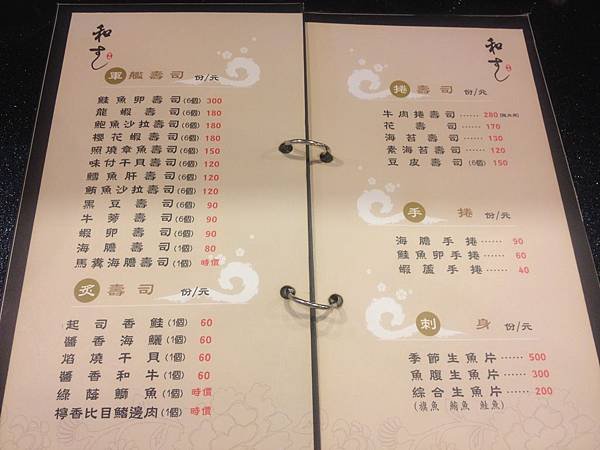 和すし
軍艦壽司 份/元
鮭魚卵壽司(6個) 300
龍蝦壽司(6個) 180
鮑魚沙拉壽司(6個) 180
櫻花蝦壽司(6個) 180
照燒章魚壽司(6個) 150
味付干貝壽司(6個) 120
鱈魚肝壽司(6個) 120
鮪魚沙拉壽司(6個) 120
黑豆壽司(6個) 90
牛蒡壽司(6個) 90
蝦卵壽司(6個) 90
海膽壽司(1個) 80
馬糞海膽壽司(1個) 時價
炙壽司 份/元
起司香鮭(1個) 60
醬香海鱺(1個) 60
焰燒干貝(1個) 60
醬香和牛(1個) 60
綠蔭鰤魚(1個) 時價
檸香比目鰭邊肉(1個) 時價
和すし
捲壽司 份/元
牛肉捲壽司 ······ 280
花壽司 ······ 170
海苔壽司 ······ 130
素海苔壽司 ······ 130
豆皮壽司(6個) 150
手捲 份/元
海膽手捲 ······ 90
鮭魚卵手捲 ······ 60
蝦蘆手捲 ······ 40
刺身 份/元
季節生魚片 ······ 500
魚腹生魚片 ······ 300
綜合生魚片 ······ 200
(旗魚 鮪魚 鮭魚)